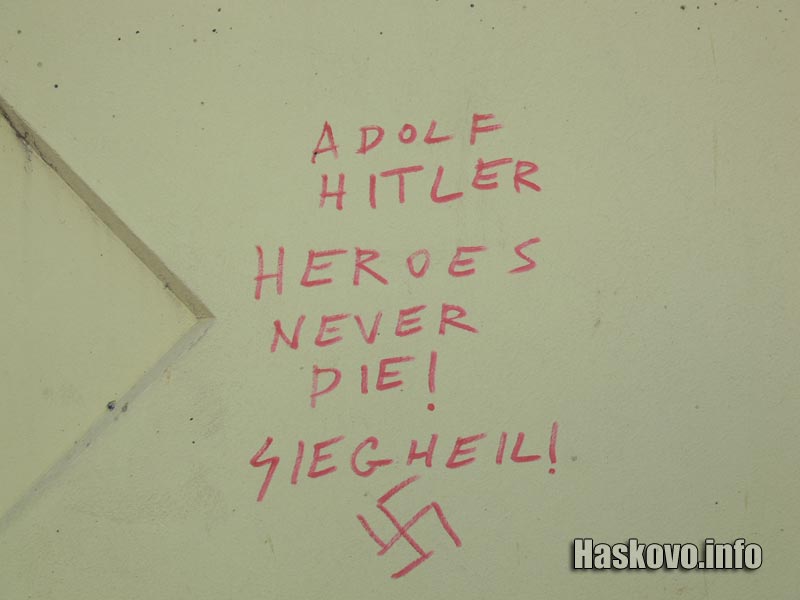 ADOLF
HITLER
HEROES
NEVER
DIE!
SIEGHEIL!
Haskovo.info